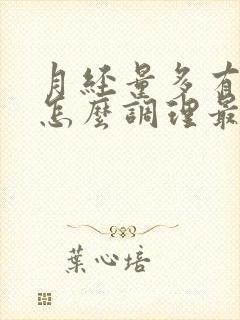 月經量多有
怎麼調理最
葉心培